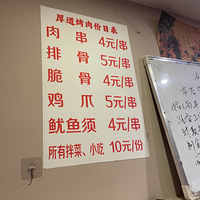 厚道烤肉价目表
肉 串 4元/串
排 骨 5元/串
脆 骨 4元/串
鸡 爪 5元/串
鱿鱼须 4元/串
所有拌菜、小吃 10元/份